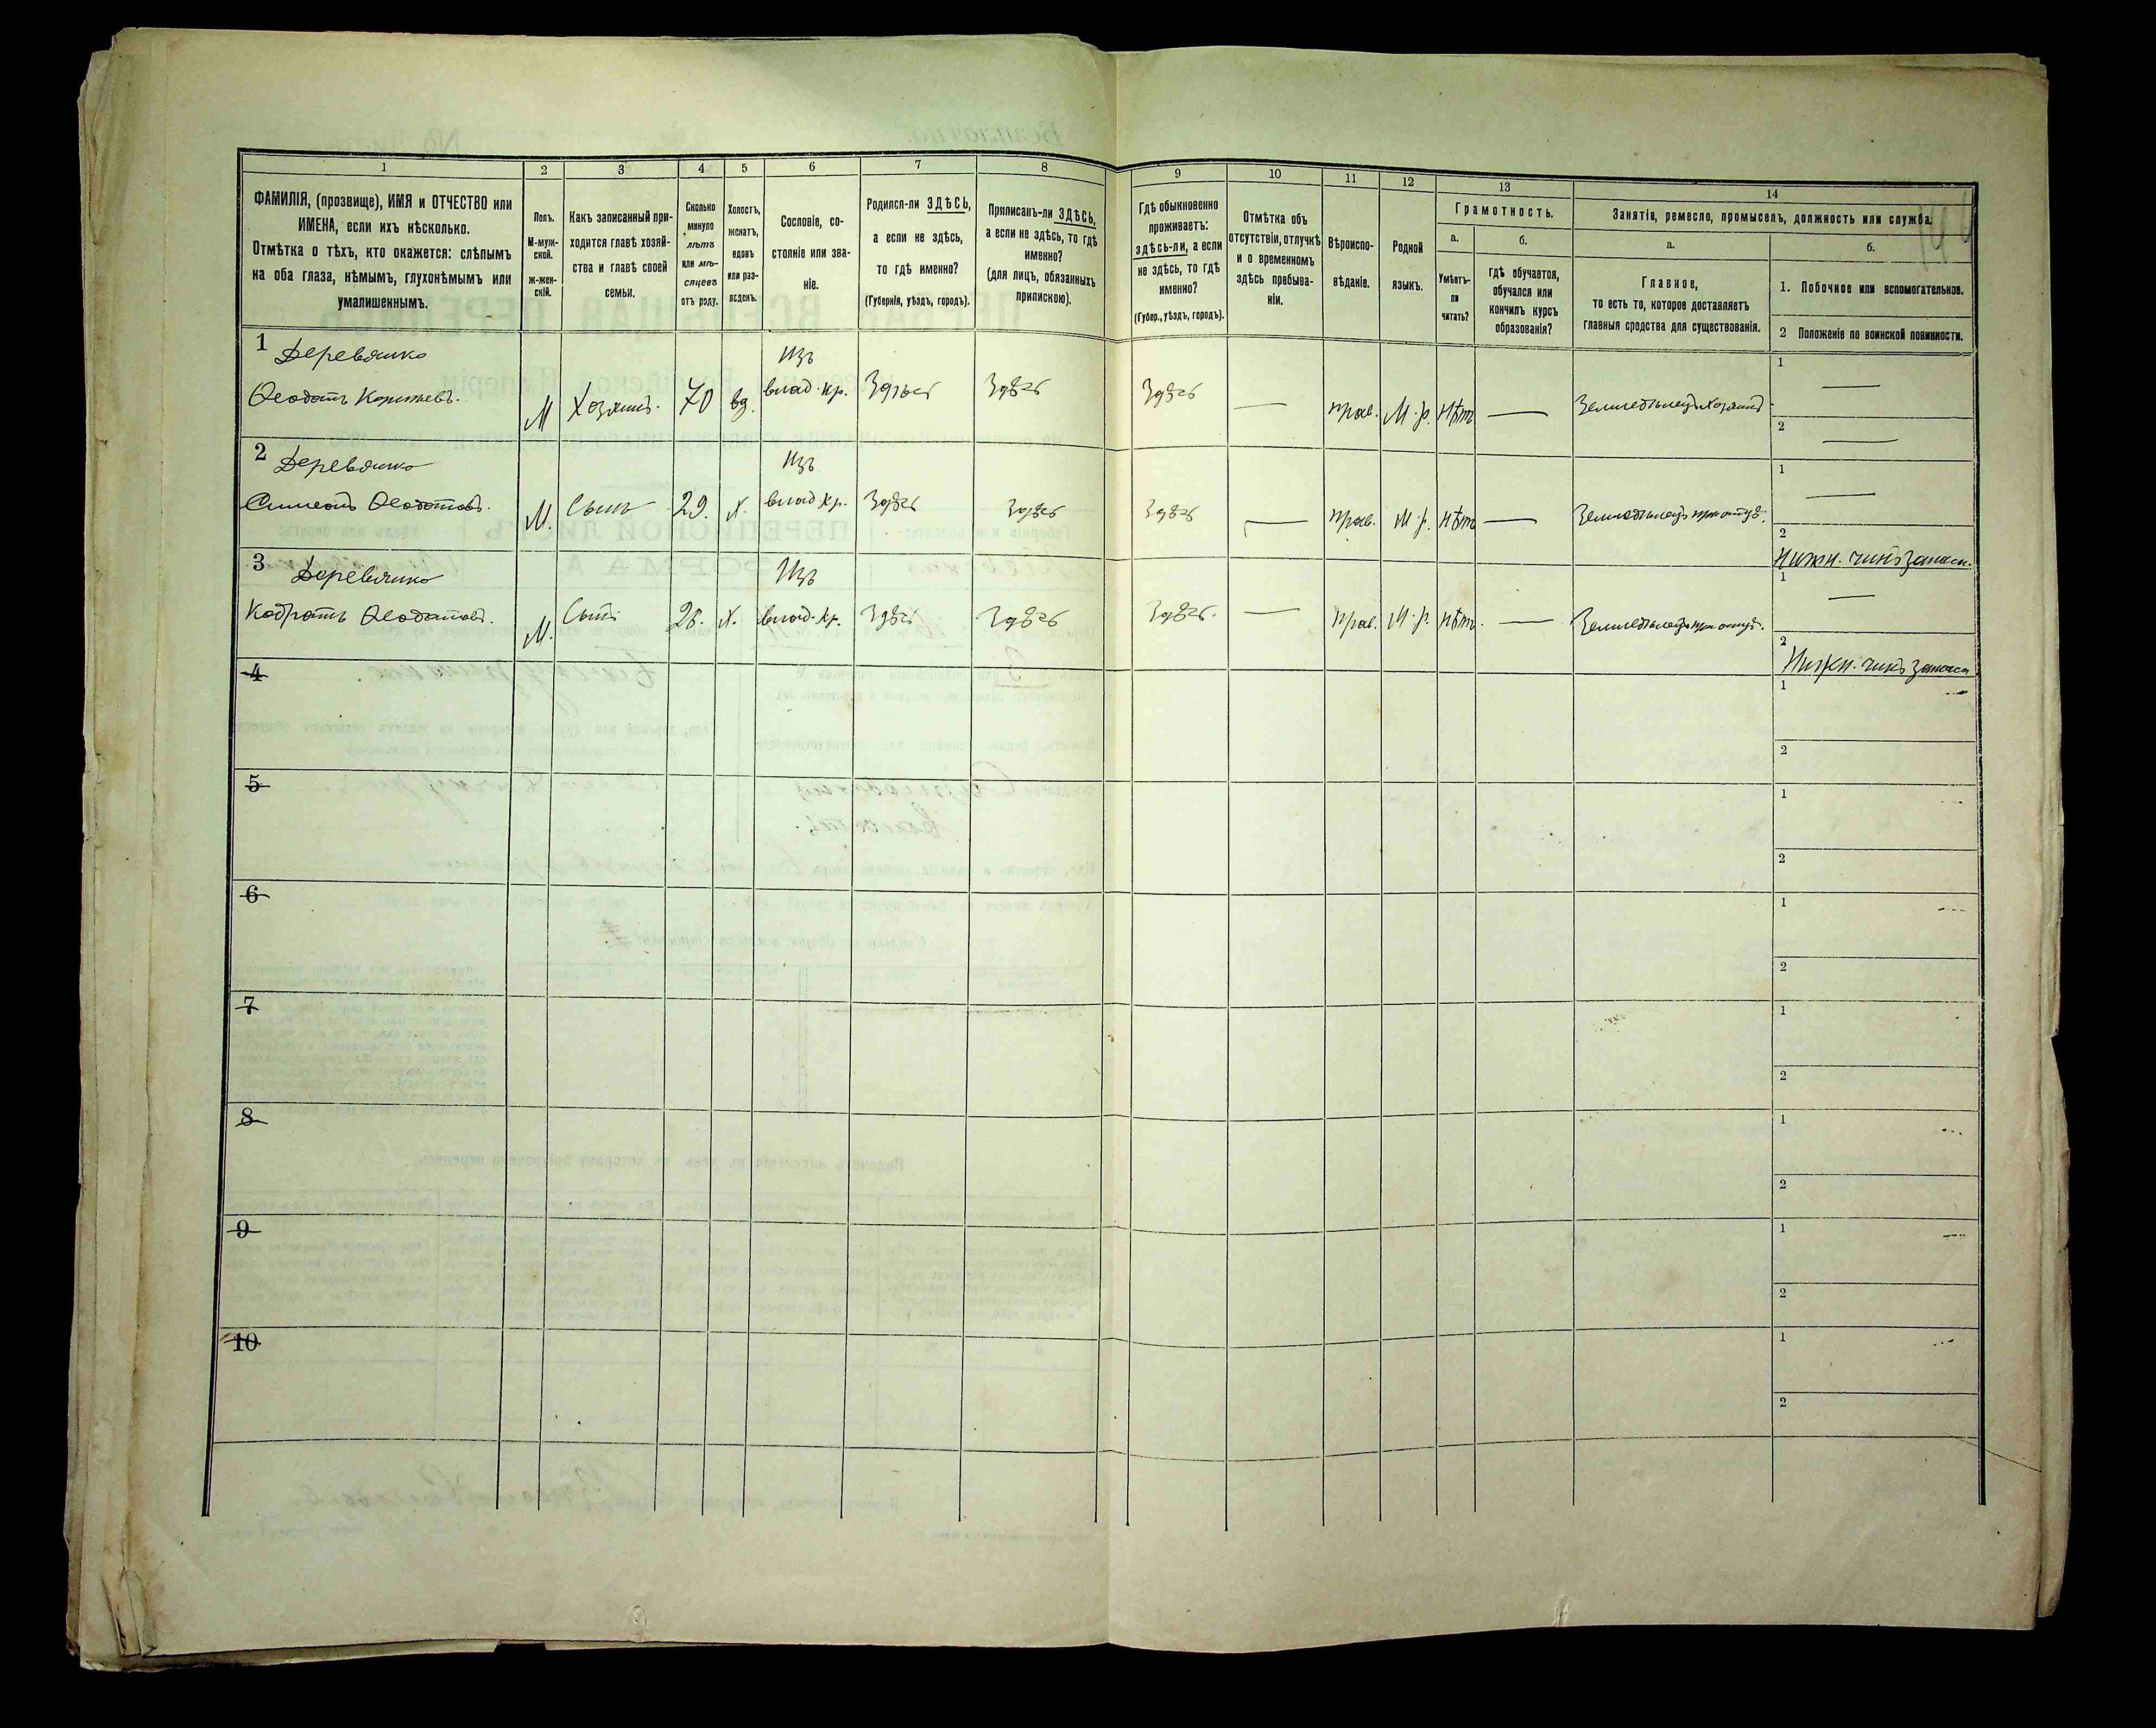 1
2
3
4
5
6
7
8
9
10
11
12
13
14
ФАМИЛІЯ, (прозвище), ИМЯ и ОТЧЕСТВО или
ИМЕНА, если ихъ нѣсколько.
Отмѣтка о тѣхъ, кто окажется: слѣпымъ
на оба глаза, нѣмымъ, глухонѣмымъ или
умалишеннымъ.
Полъ.
М-муж-
ской.
ж-жен-
скій.
Какъ записанный при-
ходится главѣ хозяй-
ства и главѣ своей
семьи.
Сколько
минуло
лѣтъ
или мѣ-
сяцевъ
отъ роду.
Холостъ,
женатъ,
вдовъ
или раз-
веденъ.
Сословіе, со-
стояніе или зва-
ніе.
Родился-ли ЗДѢСЬ,
а если не здѣсь,
то гдѣ именно?
(Губернія, уѣздъ, городъ).
Приписанъ-ли ЗДѢСЬ,
а если не здѣсь, то гдѣ
именно?
(для лицъ, обязанныхъ
припискою).
Гдѣ обыкновенно
проживаетъ:
ЗДѢСЬ-ЛИ, а если
не здѣсь, то гдѣ
именно?
(Губер., уѣздъ, городъ).
Отмѣтка объ
отсутствіи, отлучкѣ
и о временномъ
здѣсь пребыва-
ніи.
Вѣроиспо-
вѣданіе.
Родной
языкъ.
Грамотность.
а.
Умѣетъ-
ли
читать?
б.
гдѣ обучается,
обучался или
кончилъ курсъ
образованія?
Занятія, ремесло, промыселъ, должность или служба.
а.
Главное,
то есть то, которое доставляетъ
главныя средства для существованія.
б.
1. Побочное или вспомогательное.
2 Положеніе по воинской повинности.
1 Деревянко
Ѳеодотъ Корнѣевъ. М Хозяинъ. 70 вд. Изъ влад. кр. Здѣсь Здѣсь Здѣсь — прав. М.р. Нѣтъ — Земледѣлецъ хозяинъ
1 —
2 —
2 Деревянко
Симеонъ Ѳеодотовъ. М. Сынъ 29. х. Изъ влад. кр. Здѣсь Здѣсь Здѣсь — прав. М.р. Нѣтъ — Земледѣлецъ при отцѣ.
1 —
2 Нижн. чинъ запаса.
3 Деревянко
Кодратъ Ѳеодотовъ. М. Сынъ х. Изъ влад. кр. Здѣсь Здѣсь Здѣсь. — прав. М.р. Нѣтъ. — Земледѣлецъ при отцѣ.
1 —
2 Нижн. чинъ запаса
4
1
2
5
1
2
6
1
2
7
1
2
8
1
2
9
1
2
10
1
2